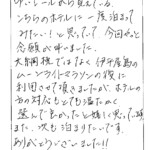 こちらのホテルに一度泊まって
みたい!と思っていて今回やっと
念願が叶いました。
大阿蘇様ではなく伊平屋島の
ムーンライトマラソンの後に
利用させて頂きましたが、ホテルの
方の対応もとても温かく
選んで良かったと嬉しく思っています。
また、次も泊まりたいです。
ありがとうございました!!